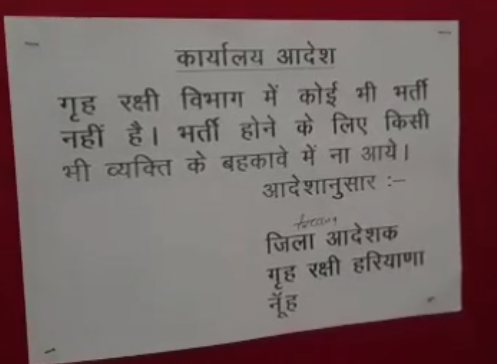 कार्यालय आदेश
गृह रक्षी विभाग में कोई भी भर्ती
नहीं है। भर्ती होने के लिए किसी
भी व्यक्ति के बहकावे में ना आये।
आदेशानुसार :–
जिला आदेशक
गृह रक्षी हरियाणा
नूँह